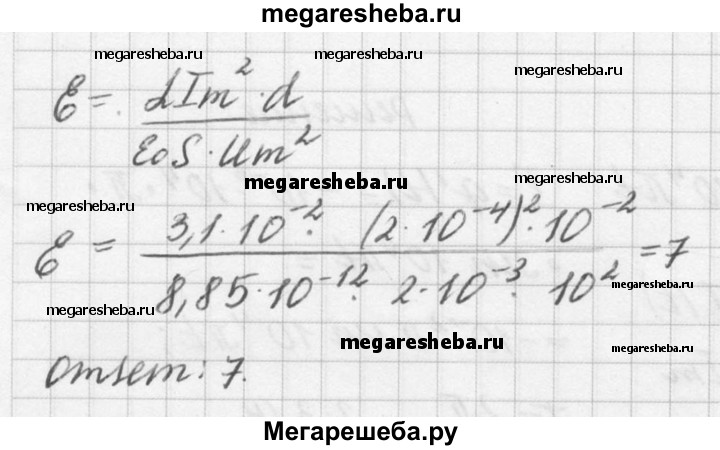 megaresheba.ru
megaresheba.ru megaresheba.ru megaresheba.ru
ε = LIm² · d / ε₀S · Um²
megaresheba.ru megaresheba.ru
megaresheba.ru
ε = 3,1 · 10⁻² · (2 · 10⁻⁴)² · 10⁻² / 8,85 · 10⁻¹² · 2 · 10⁻³ · 10² = 7
megaresheba.ru megaresheba.ru
megaresheba.ru
megaresheba.ru
Ответ: 7.
megaresheba.ru
Мегарешеба.ру